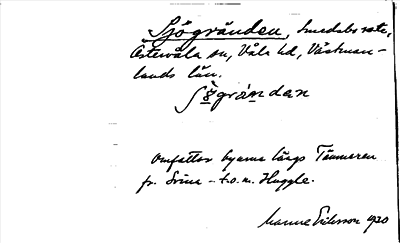 Sjögränden, Smedsbo rote,
Östervåla sn, Våla hd, Västman-
lands län.
Sögrándan
Omfattar byarna längs Tämnaren
fr. Svina - t.o.m. Huggle.
Manne Eriksson 1920